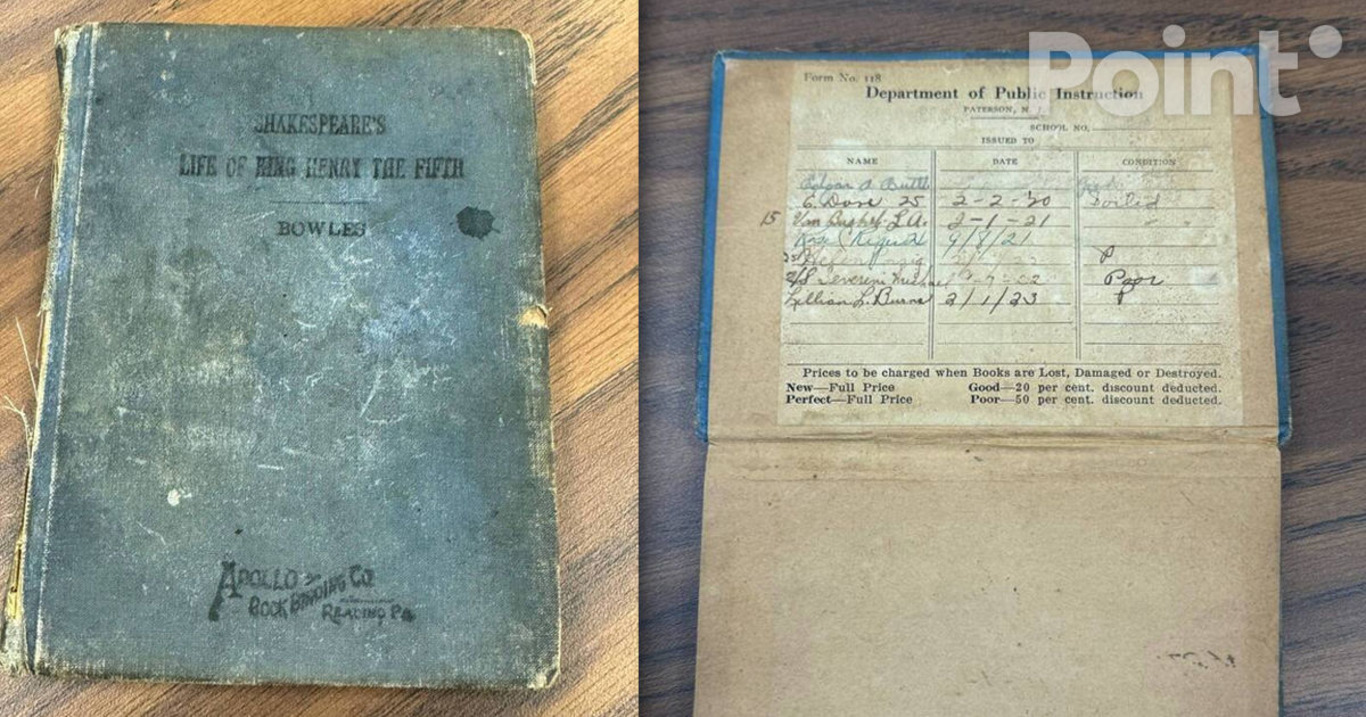 SHAKESPEARE'S
LIFE OF KING HENRY THE FIFTH
BOWLES
APOLLO
BOOK BINDING CO.
READING PA
Point
Form No. 118
Department of Public Instruction
PATERSON, N. J.
SCHOOL NO.
ISSUED TO
NAME DATE CONDITION
Edgar A
25 2-2-'20 Soiled
15 Van L.A. 2-1-21
9/8/21
Helen P
Severini Michael Poor
Lillian L. Burns 2/1/23
Prices to be charged when Books are Lost, Damaged or Destroyed.
New—Full Price Good—20 per cent. discount deducted.
Perfect—Full Price Poor—50 per cent. discount deducted.